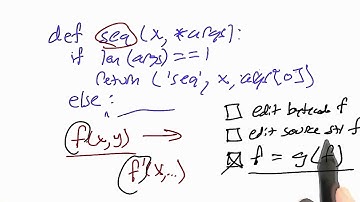 def seq (x, *args):
if len(args)==1
return ('seq', x, args[0])
else:
f(x,y) →
f'(x,...)
edit bytecode f
edit source str f
f = g(f)